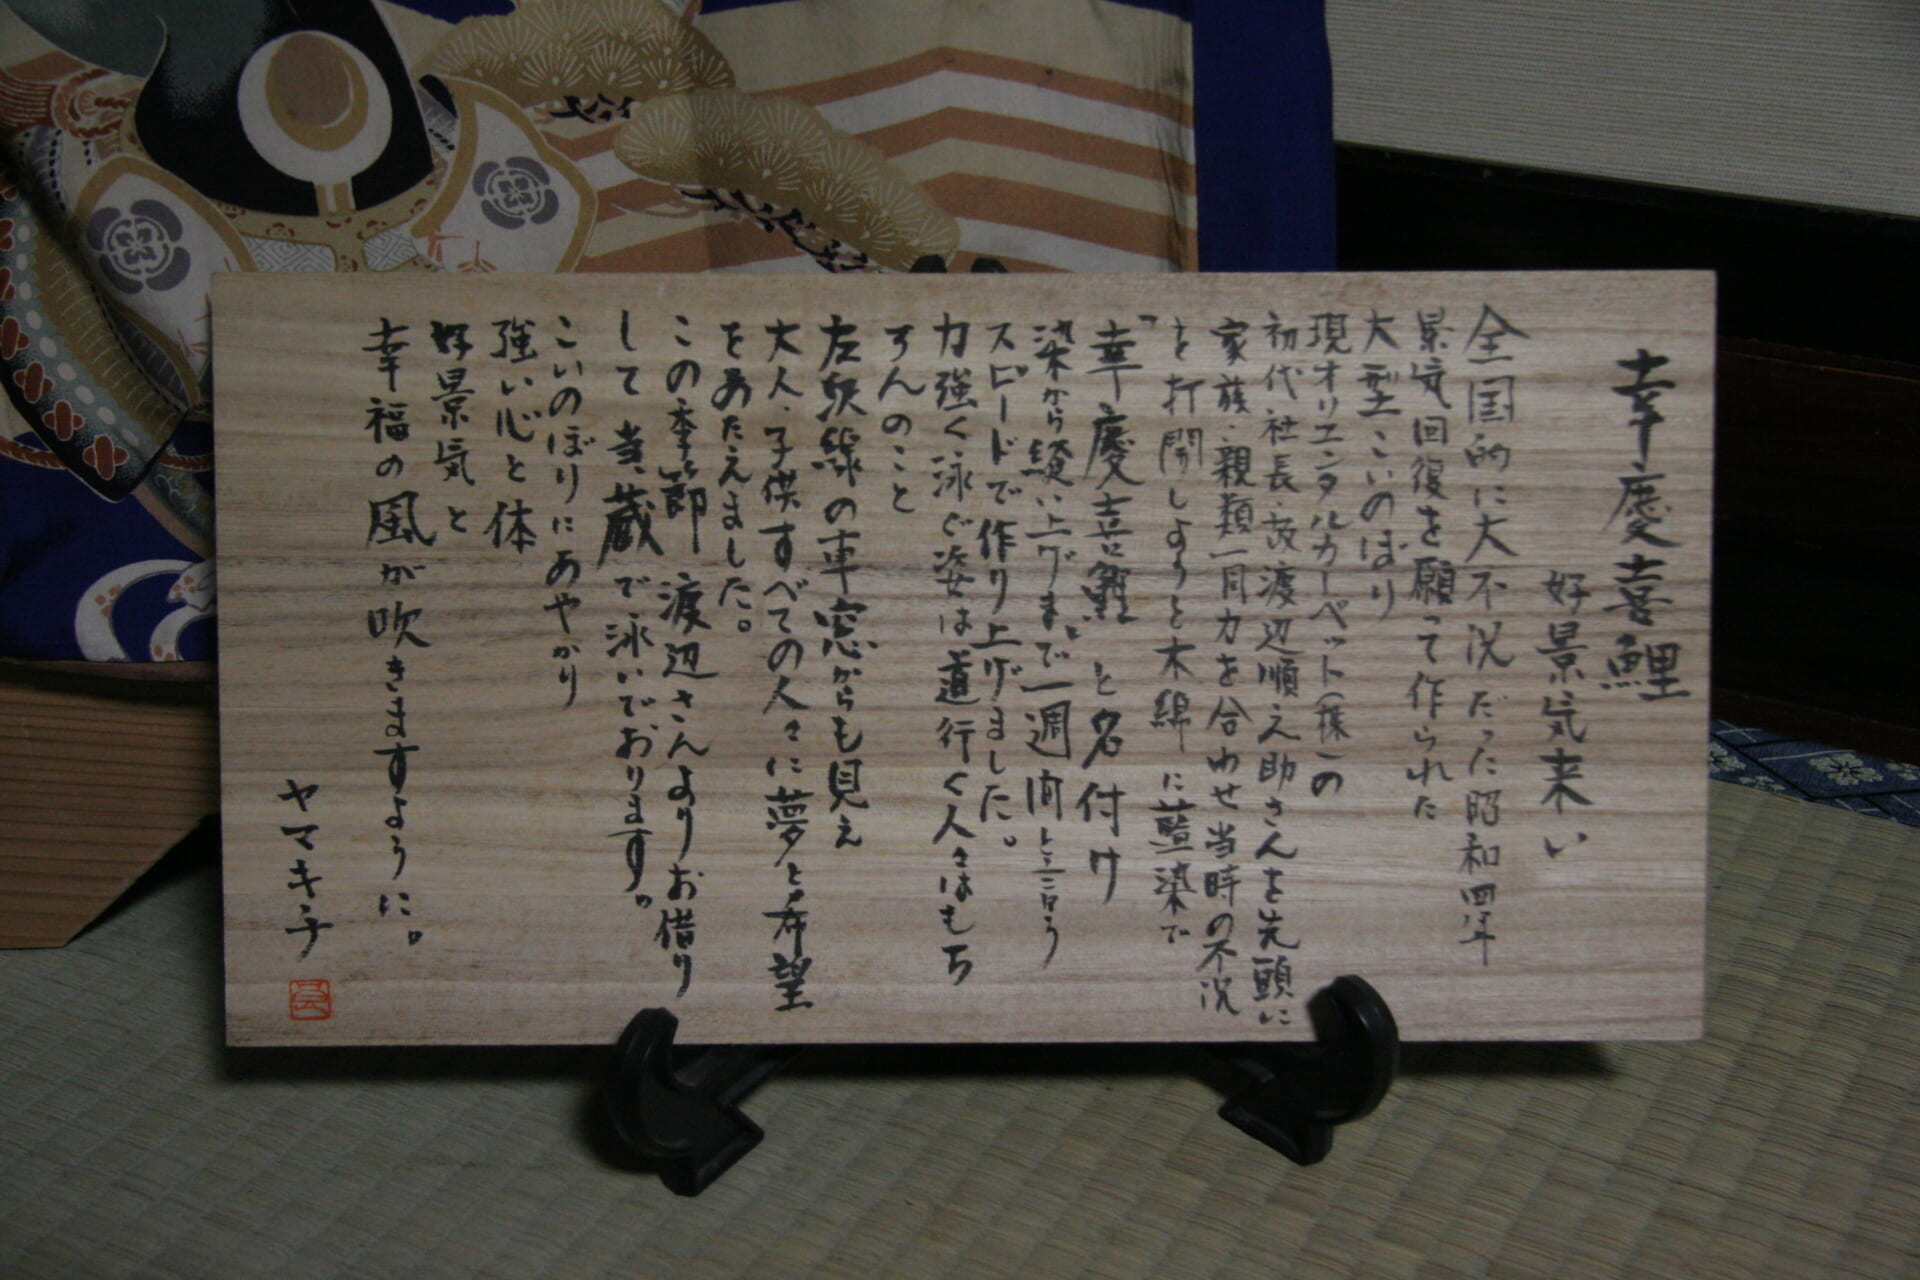 幸慶喜鯉
好景気来い
全国的に大不況だった昭和四年
景気回復を願って作られた
大型こいのぼり
現オリエンタルカーペット(株)の
初代社長・故渡辺順之助さんを先頭に
家族・親類一同力を合わせ当時の不況
を打開しようと木綿に藍染で
「幸慶喜鯉」と名付け
染から縫い上げまで一週間と言う
スピードで作り上げました。
力強く泳ぐ姿は道行く人々はもち
ろんのこと
左沢線の車窓からも見え
大人・子供すべての人々に夢と希望
をあたえました。
この季節渡辺さんよりお借り
して当蔵で泳いでおります。
こいのぼりにあやかり
強い心と体
好景気と
幸福の風が吹きますように。
ヤマキチ